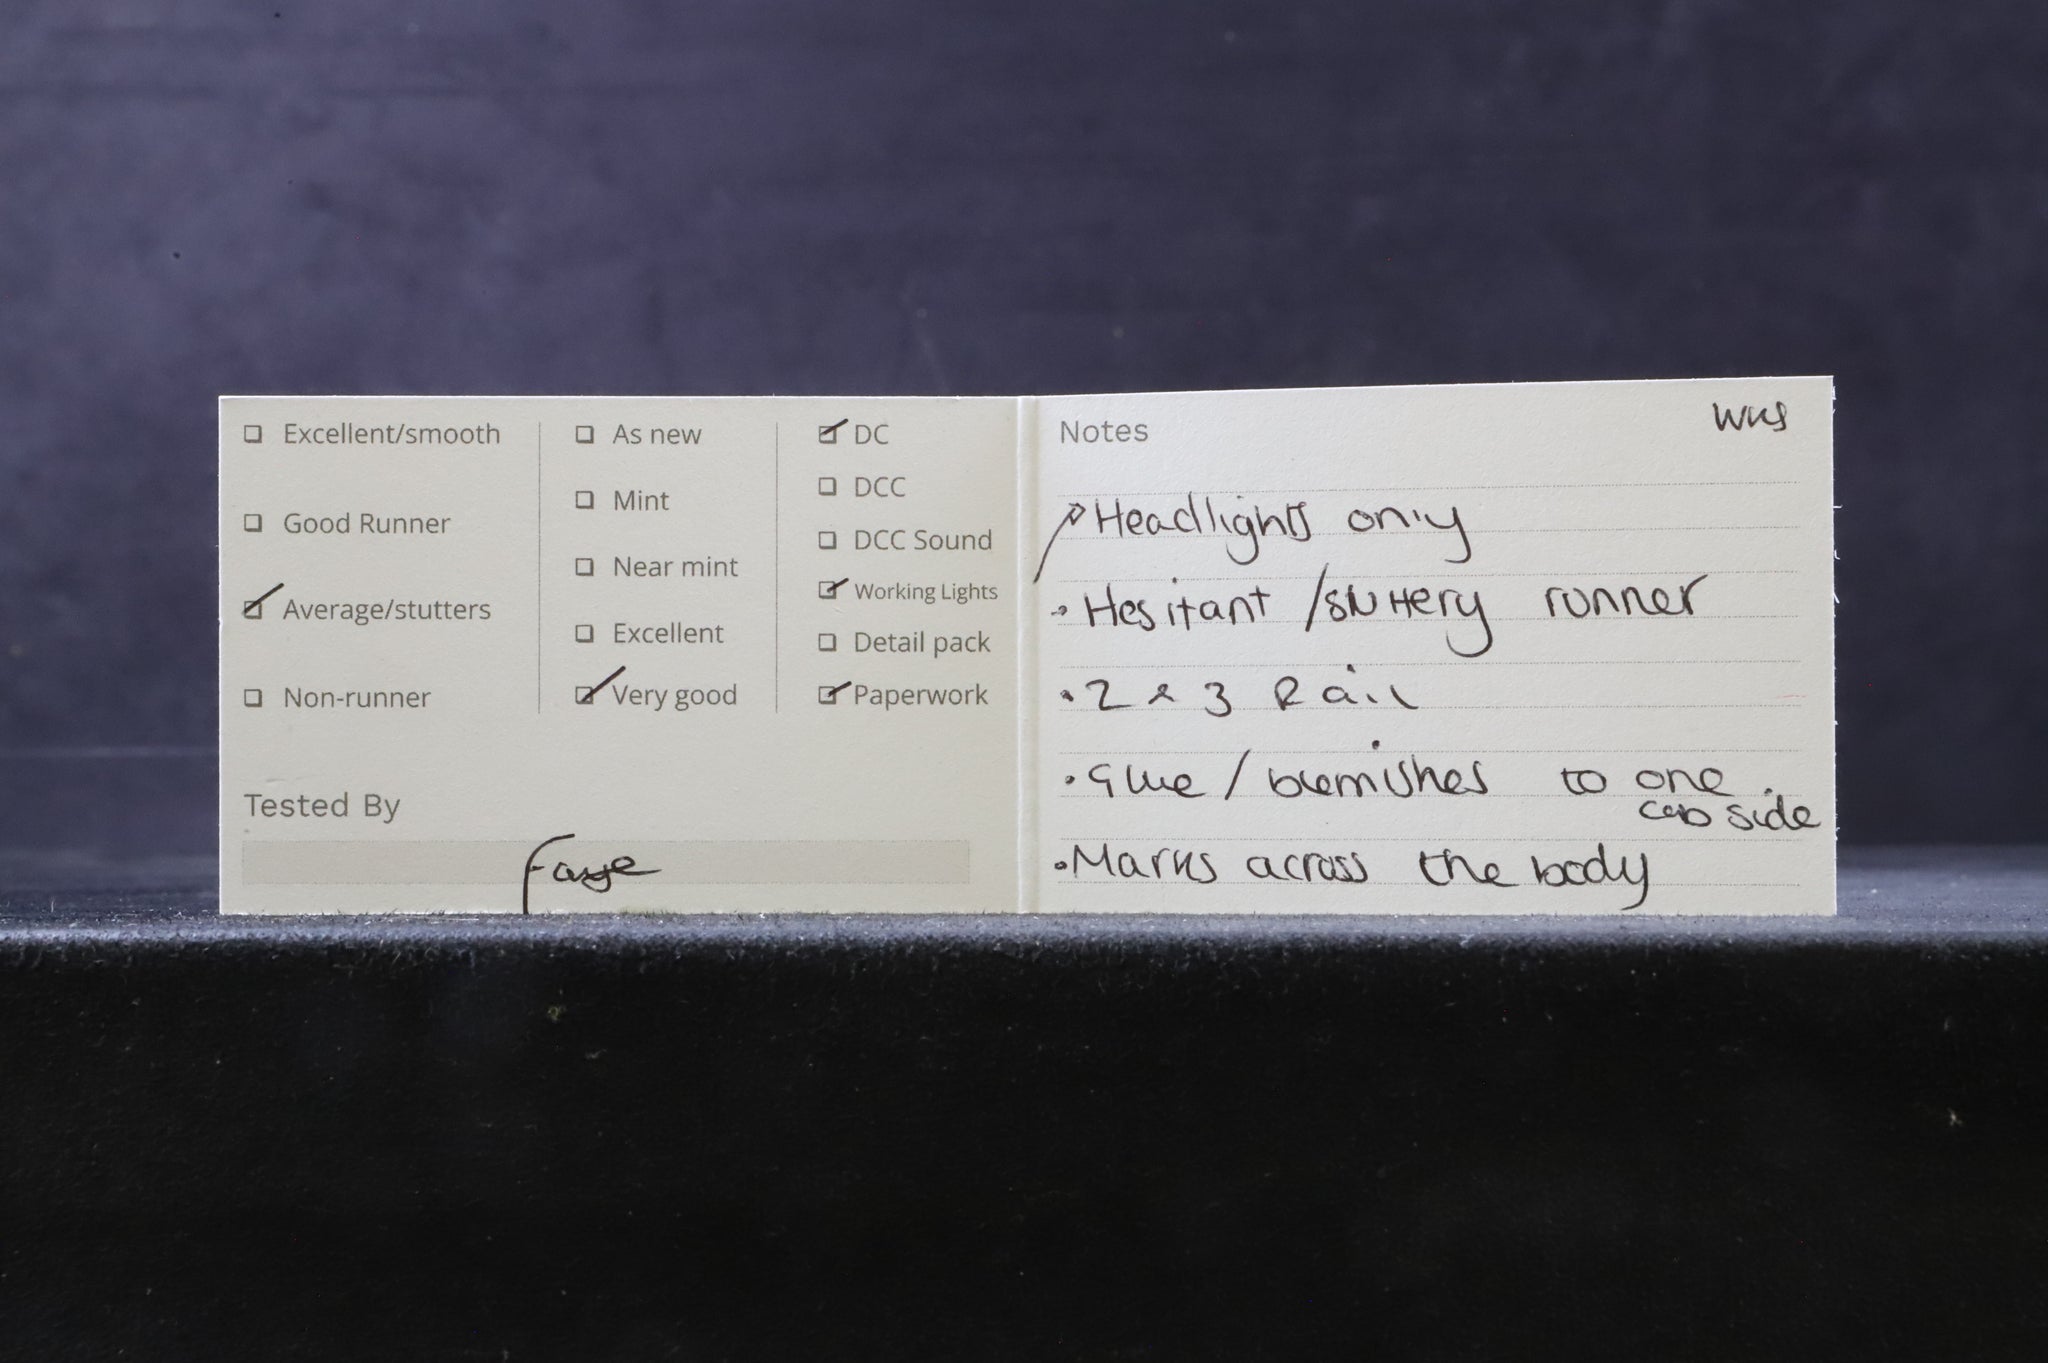 Excellent/smooth
Good Runner
Average/stutters
Non-runner
As new
Mint
Near mint
Excellent
Very good
DC
DCC
DCC Sound
Working Lights
Detail pack
Paperwork
Tested By
Faye
Notes
Headlights only
• Hesitant / stuttery runner
• 2 & 3 Rail
• Glue / blemishes to one
cab side
• Marks across the body